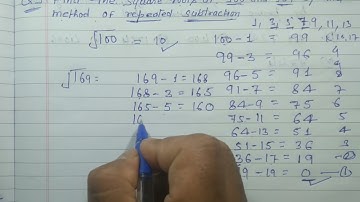 Find the square root of 100 and 169 by
method of repeated subtraction
1, 3, 5, 7, 9, 11, 13
√100 = 10
100 - 1 = 99
99 - 3 = 96
√169 =
169 - 1 = 168
96 - 5 = 91
168 - 3 = 165
91 - 7 = 84 7
165 - 5 = 160
84 - 9 = 75 6
16
75 - 11 = 64 5
64 - 13 = 51 4
51 - 15 = 36 3
36 - 17 = 19
19 - 19 = 0